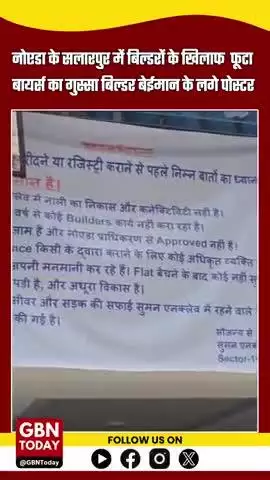 नोएडा के सलारपुर में बिल्डरों के खिलाफ फूटा
बायर्स का गुस्सा बिल्डर बेईमान के लगे पोस्टर
रीदने या रजिस्ट्री कराने से पहले निम्न बातों का ध्यान
है।
में नाली का निकास और कनेक्टिविटी नही है।
वर्ष से कोई Builders कार्य नहीं करा रहा है।
और नोएडा प्राधिकरण से Approved नहीं है।
nce किसी के द्वारा कराने के लिए कोई अधिकृत व्यक्ति
अपनी मनमानी कर रहे हैं। Flat बेचने के बाद कोई नहीं सु
पड़ी है, और अधूरा विकास है।
सीवर और सड़क की सफाई सुमन एनक्लेव में रहने वाले
की गई है।
सौजन्य से
सुमन एन
Sector-1
GBN
TODAY
@GBNToday
FOLLOW US ON